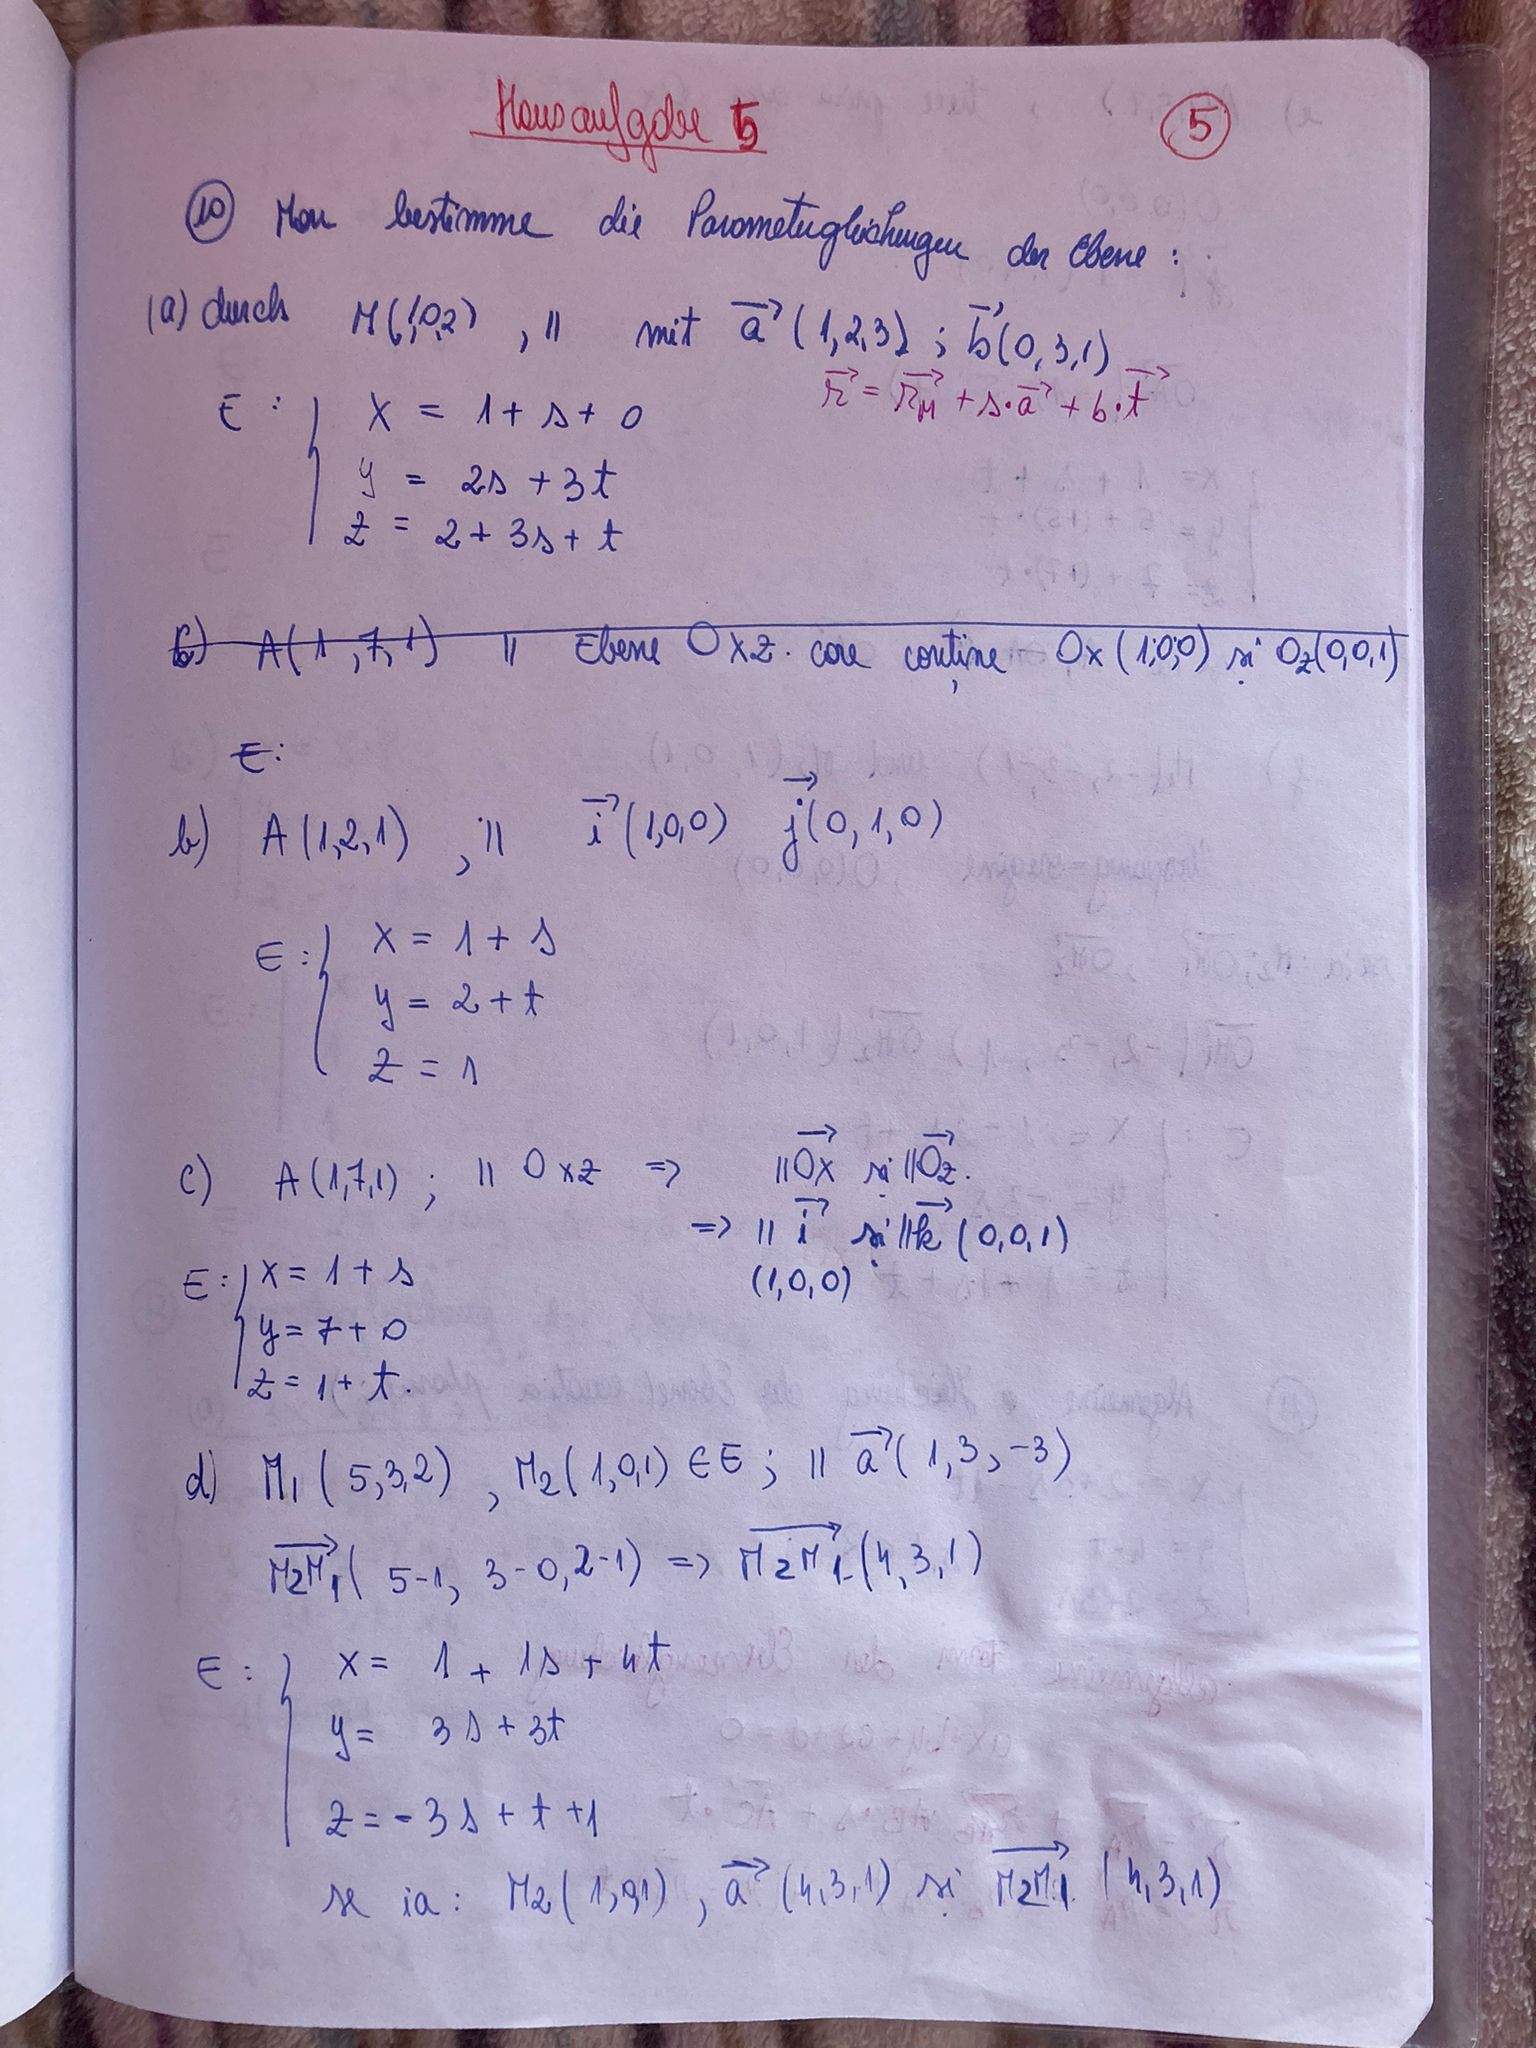 Hausaufgabe 5
5
10 Man bestimme die Parametergleichungen der Ebene :
(a) durch M(1,0,2) , || mit a⃗ (1,2,3) ; b⃗(0,3,1)
r⃗ = r⃗_M + s·a⃗ + b·t⃗
E : { x = 1 + s + 0
y = 2s + 3t
z = 2 + 3s + t
c) A(1,7,1) || Ebene Oxz. care conține Ox(1,0,0) și Oz(0,0,1)
E:
b) A(1,2,1) , || i⃗(1,0,0) j⃗(0,1,0)
E : { x = 1 + s
y = 2 + t
z = 1
c) A(1,7,1) ; || Oxz => ||Ox⃗ și ||Oz⃗.
=> || i⃗ și ||k⃗ (0,0,1)
(1,0,0)
E : { x = 1 + s
y = 7 + 0
z = 1 + t.
d) M₁(5,3,2) , M₂(1,0,1) ∈ E ; || a⃗(1,3,-3)
M₂M₁⃗(5-1, 3-0, 2-1) => M₂M₁⃗(4,3,1)
E : { x = 1 + 1s + 4t
y = 3s + 3t
z = -3s + t + 1
se ia : M₂(1,0,1) , a⃗ (4,3,1) și M₂M₁⃗ (4,3,1)